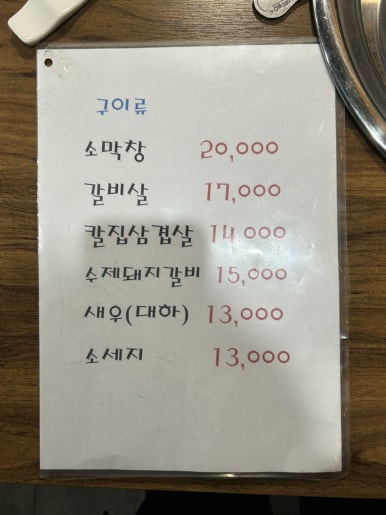 구이류
소막창 20,000
갈비살 17,000
칼집삼겹살 14,000
수제돼지갈비 15,000
새우(대하) 13,000
소세지 13,000